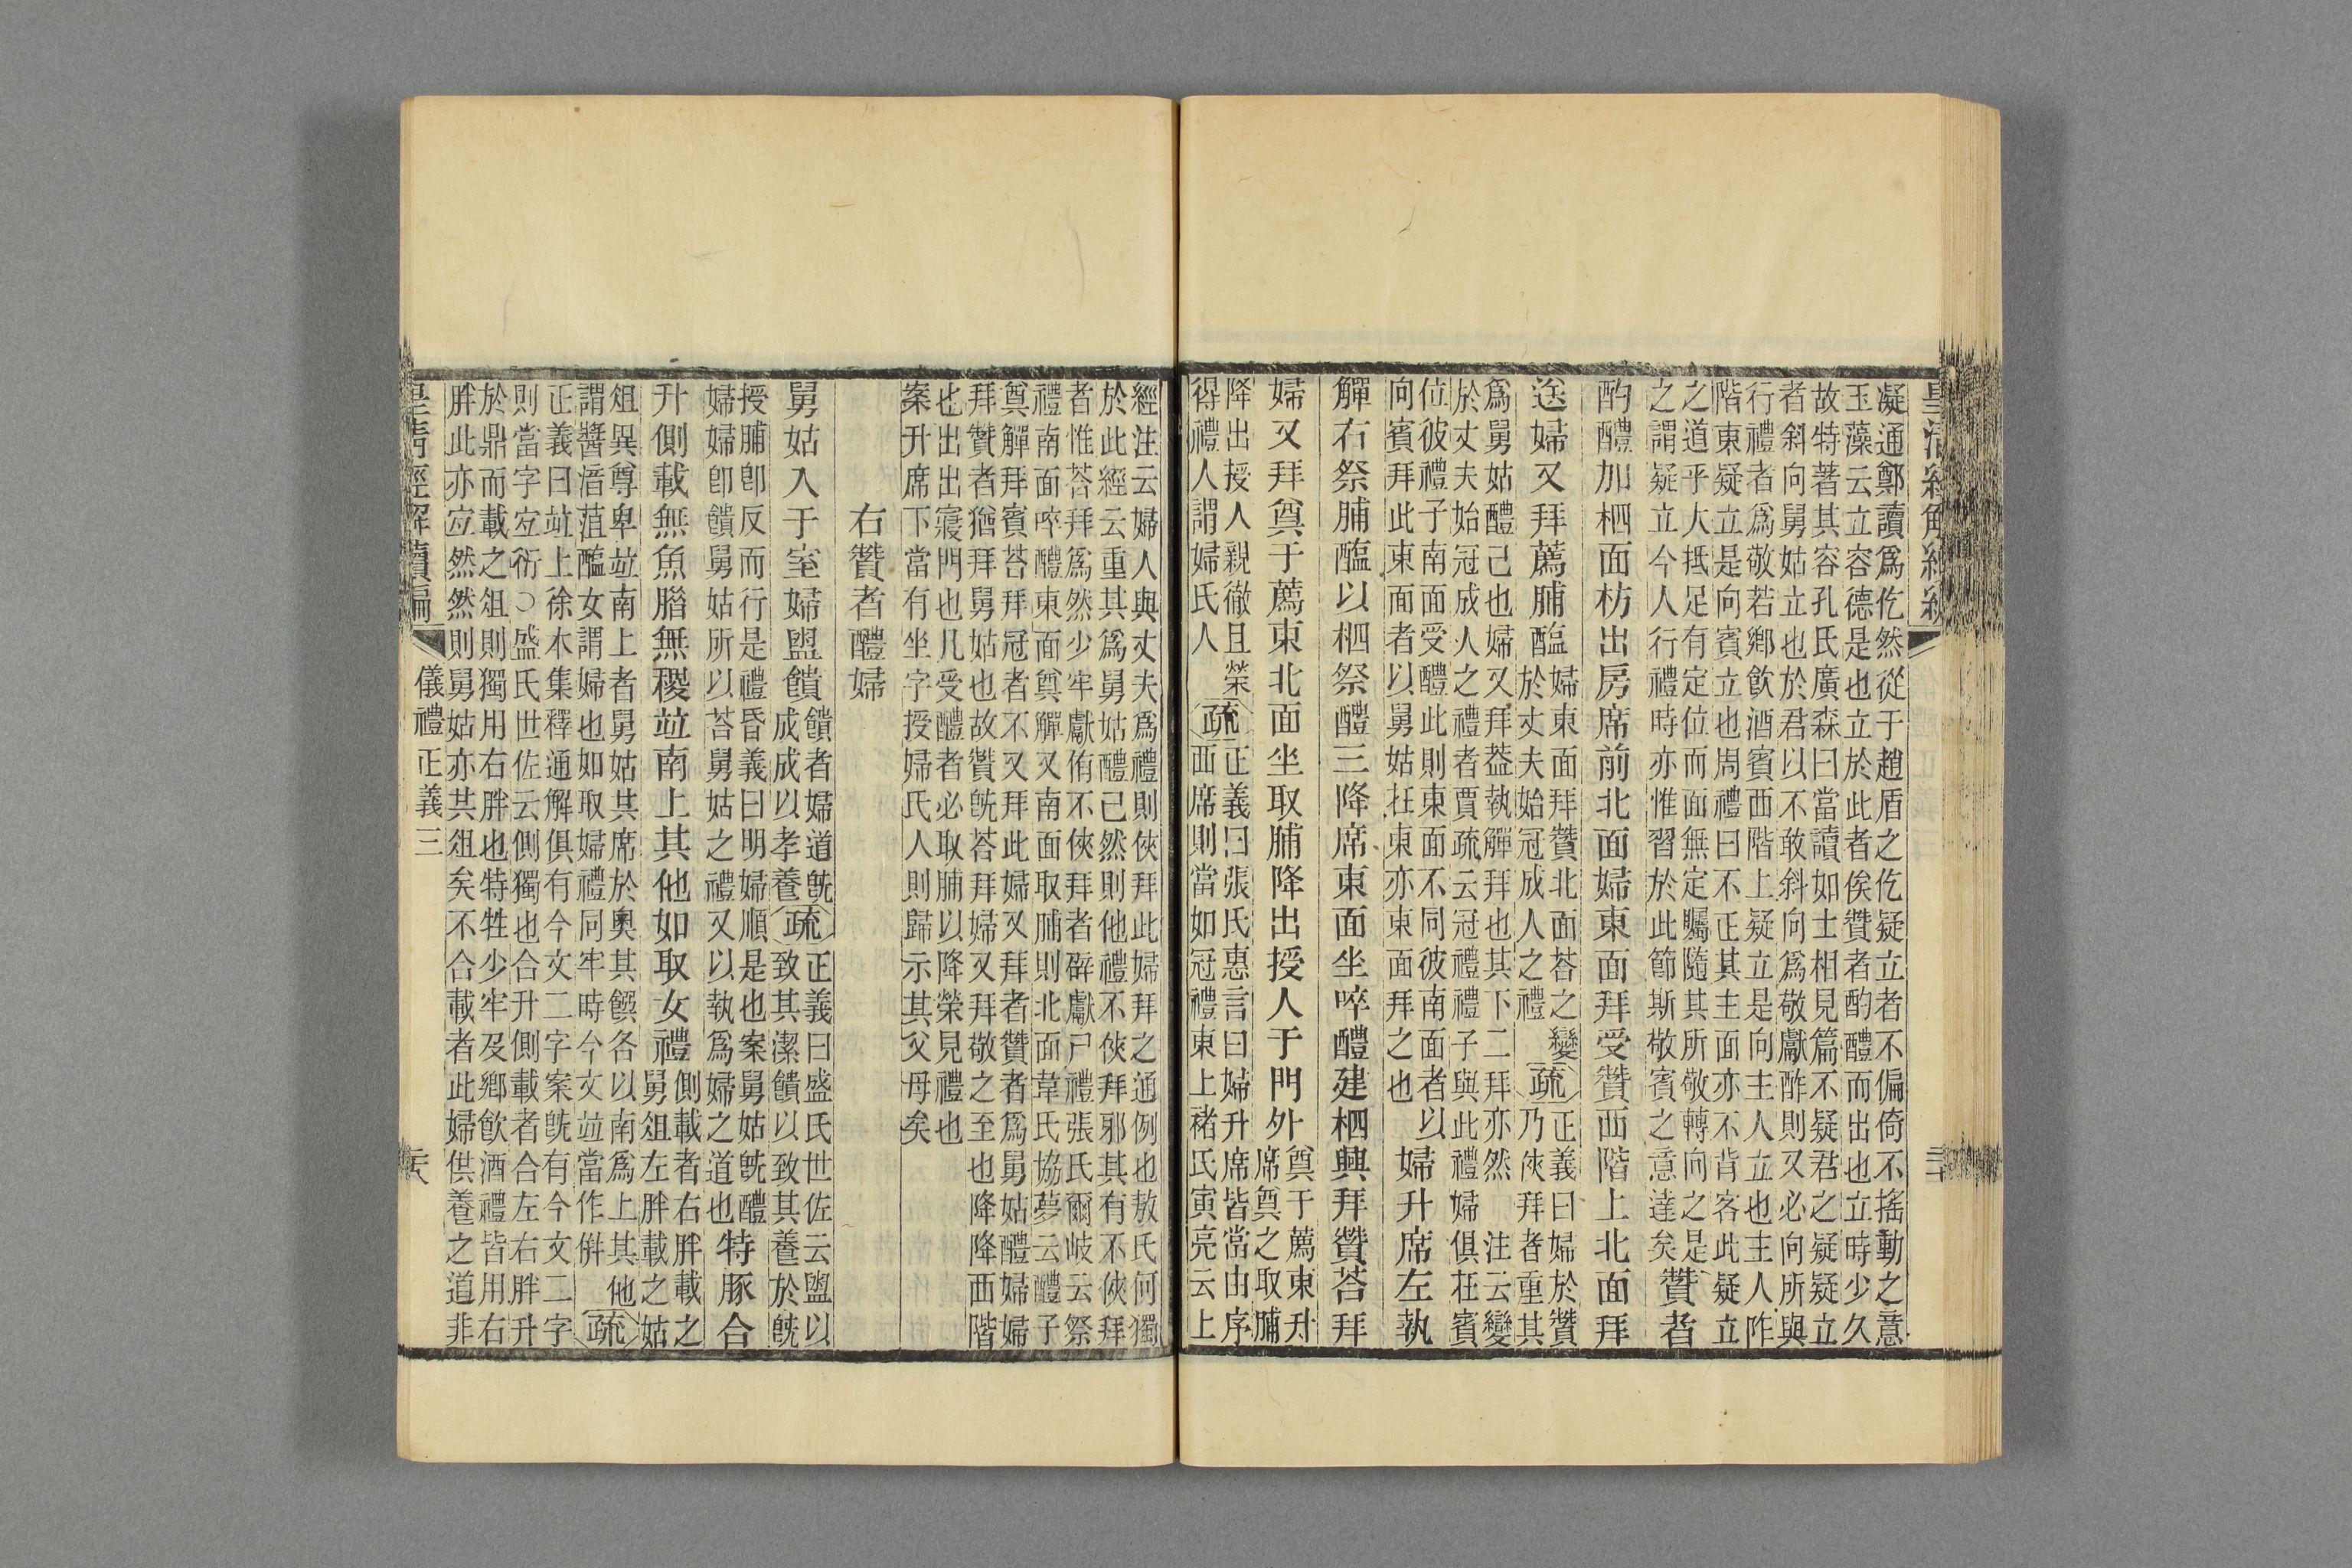 凝通鄭讀爲仡然從于趙盾之仡疑立者不偏倚不搖動之意
玉藻云立容德是也立於此者俟贊者酌醴而出也立時少久
故特著其容孔氏廣森曰當讀如士相見篇不疑君之疑疑立
者斜向舅姑立也於君以不敢斜向爲敬獻酢則又必向所與
行禮者爲敬若鄉飮酒賓西階上疑立是向主人立也主人阼
階東疑立是向賓立也周禮曰不正其主面亦不背客此疑立
之道乎大抵足有定位而面無定矚隨其所敬轉向之是
之謂疑立今人行禮時亦惟習於此節斯敬賓之意達矣
贊者
酌醴加柶面枋出房席前北面婦東面拜受贊西階上北面拜
送婦又拜薦脯醢
婦東面拜贊北面荅之變
於丈夫始冠成人之禮
疏
正義曰婦於贊
乃俠拜者重其
爲舅姑醴己也婦又拜葢執觶拜也其下二拜亦然　注云變
於丈夫始冠成人之禮者賈疏云冠禮禮子與此禮婦俱在賓
位彼禮子南面受醴此則東面不同彼南面者以
向賓拜此東面者以舅姑在東亦東面拜之也
婦升席左執
觶右祭脯醢以柶祭醴三降席東面坐啐醴建柶興拜贊荅拜
婦又拜奠于薦東北面坐取脯降出授人于門外
奠于薦東升
席奠之取脯
降出授人親徹且榮
得禮人謂婦氏人
疏
正義曰張氏惠言曰婦升席皆當由序
西席則當如冠禮東上褚氏寅亮云上
經注云婦人與丈夫爲禮則俠拜此婦拜之通例也敖氏何獨
於此經云重其爲舅姑醴己然則他禮不俠拜邪其有不俠拜
者惟荅拜爲然少牢獻侑不俠拜者辟獻尸禮張氏爾岐云祭
禮南面啐醴東面奠觶又南面取脯則北面韋氏協夢云醴子
奠觶拜賓荅拜冠者不又拜此婦又拜者贊者爲舅姑醴婦婦
拜贊者猶拜舅姑也故贊旣荅拜婦又拜敬之至也降降西階
也出出寢門也凡受醴者必取脯以降榮見禮也
案升席下當有坐字授婦氏人則歸示其父母矣
右贊者醴婦
舅姑入于室婦盥饋
饋者婦道旣
成成以孝養
疏
正義曰盛氏世佐云盥以
致其潔饋以致其養於旣
授脯卽反而行是禮昏義曰明婦順是也案舅姑旣醴
婦婦卽饋舅姑所以荅舅姑之禮又以執爲婦之道也
特豚合
升側載無魚腊無稷竝南上其他如取女禮
側載者右胖載之
舅俎左胖載之姑
俎異尊卑竝南上者舅姑其席於奧其饌各以南爲上其他
謂醬湆菹醢女謂婦也如取婦禮同牢時今文竝當作倂
疏
正義曰竝上徐本集釋通解俱有今文二字案旣有今文二字
則當字宐衍○盛氏世佐云側獨也合升側載者合左右胖升
於鼎而載之俎則獨用右胖也特牲少牢及鄉飮酒禮皆用右
胖此亦宐然然則舅姑亦其俎矣不合載者此婦供養之道非
皇淸經解續編
儀禮正義三